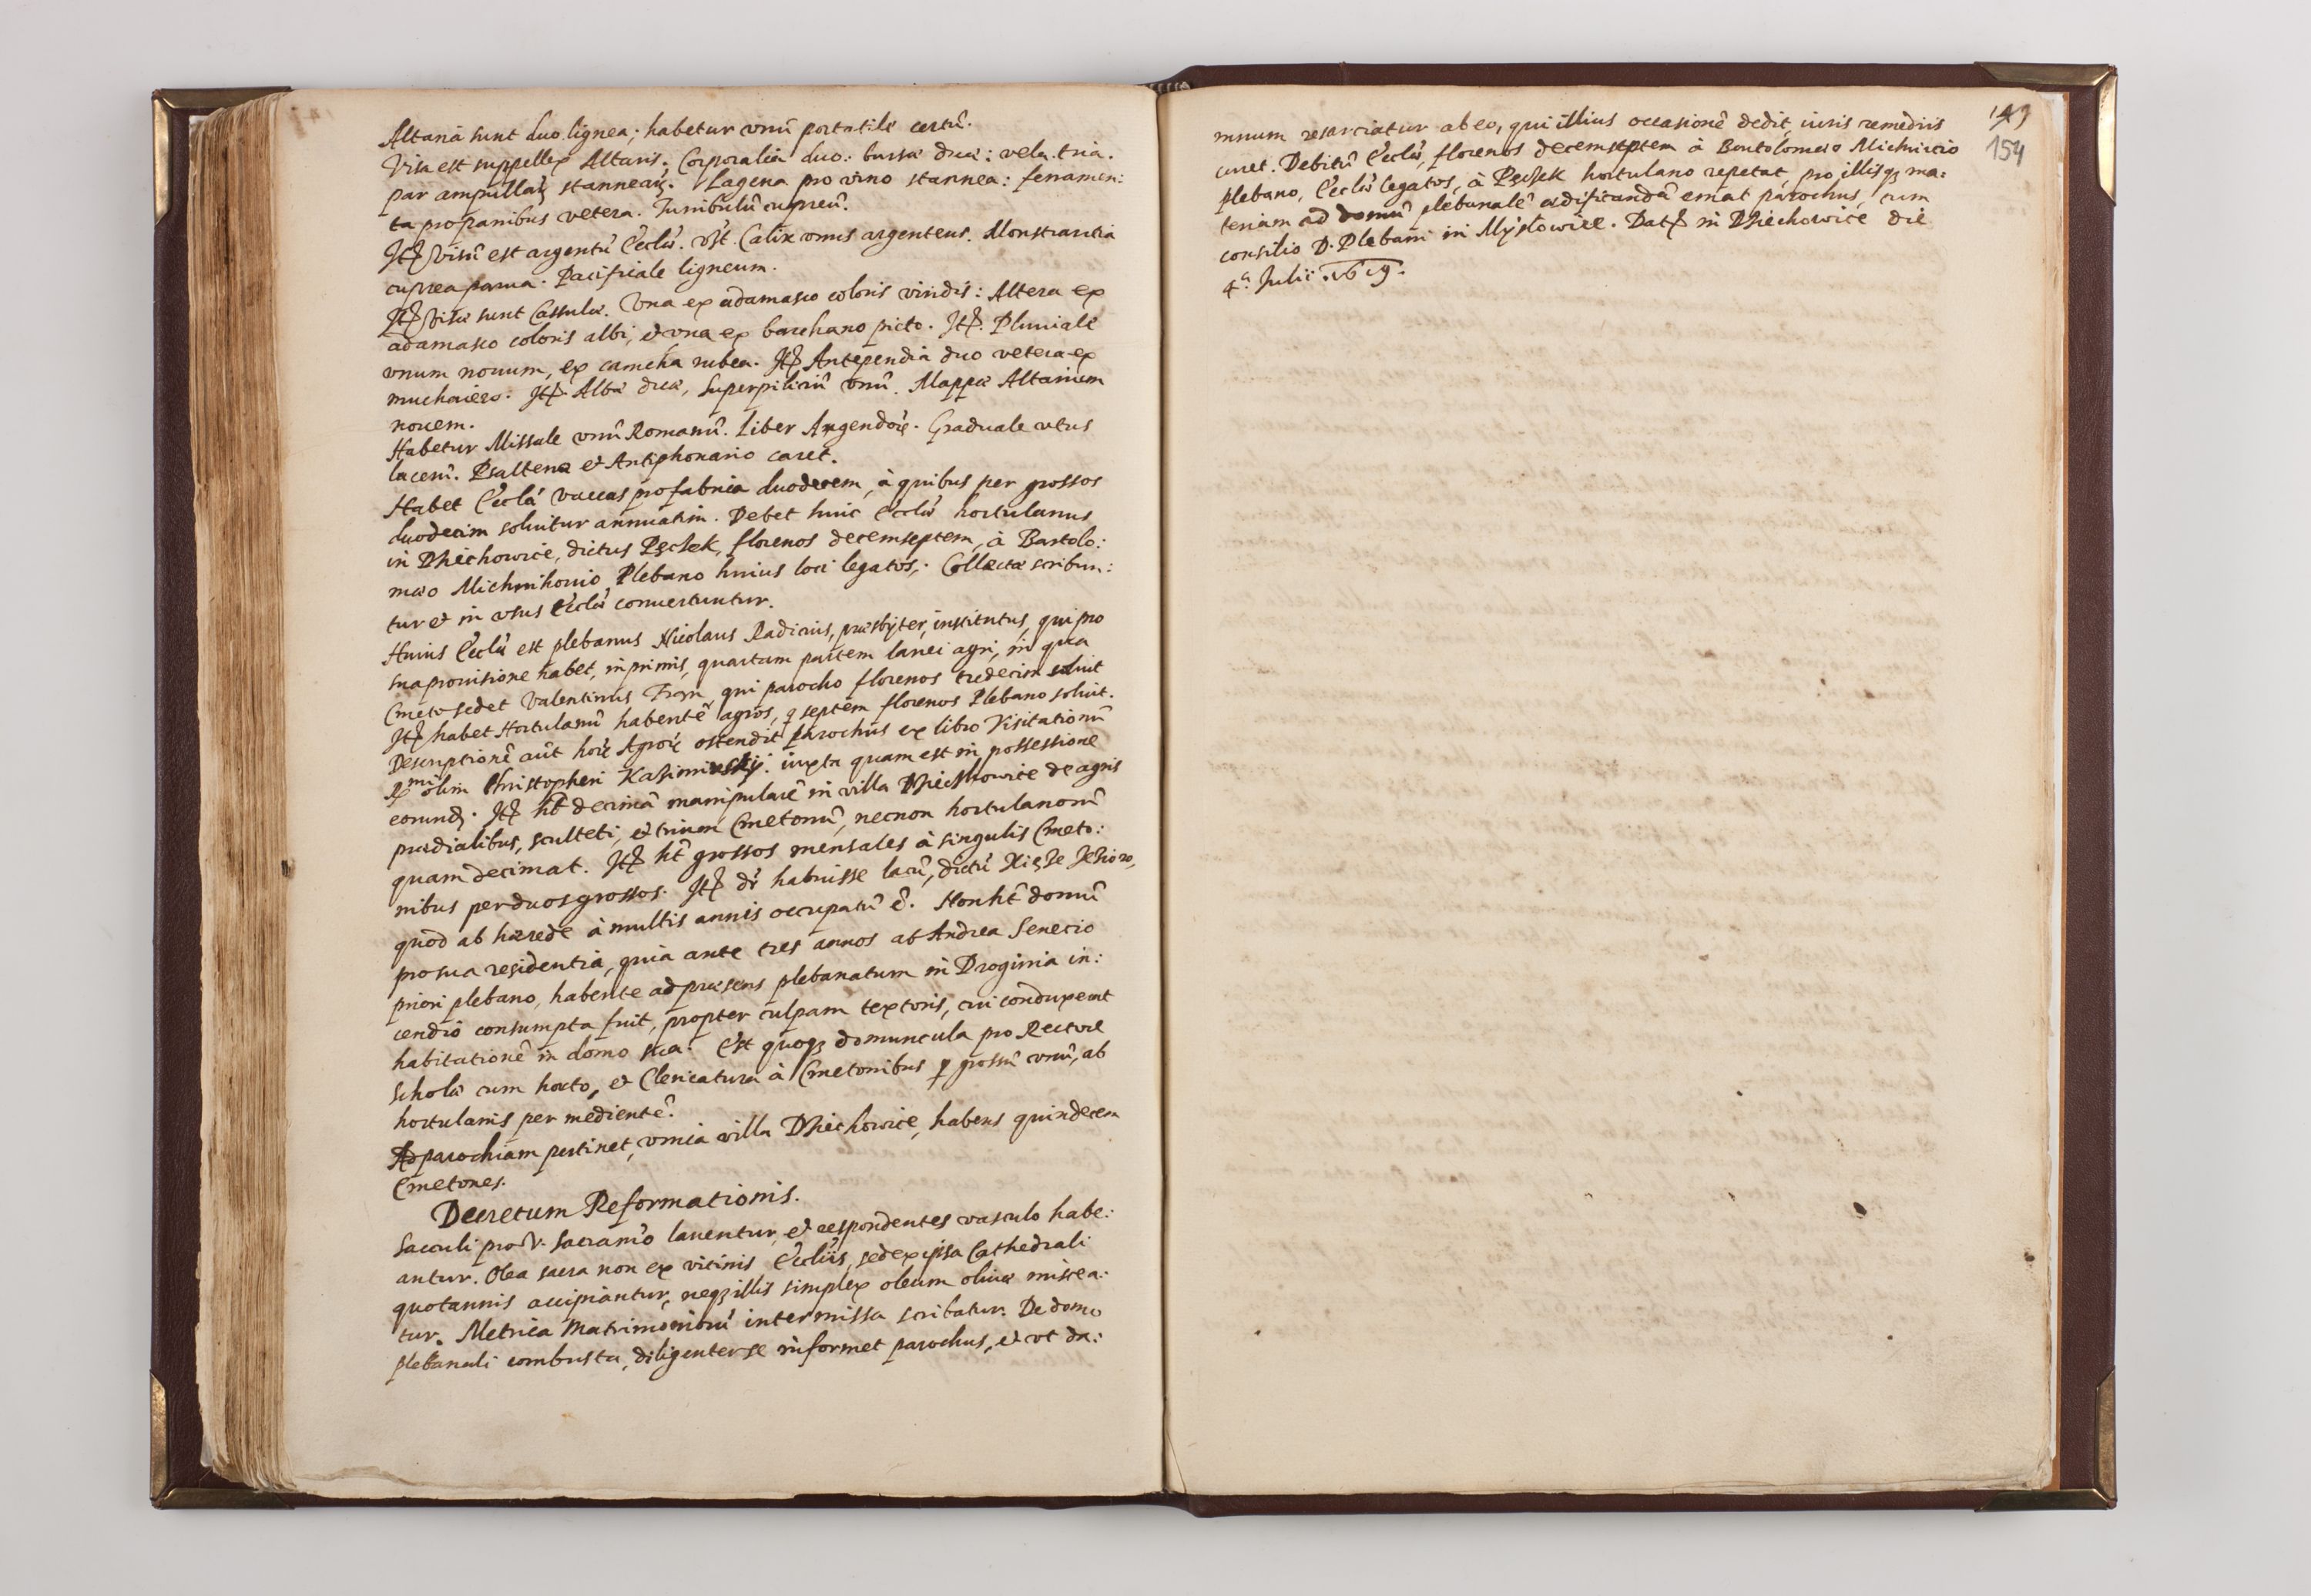 Altaria sunt duo lignea; habetur vnũ portatile certũ.
Visa est suppellex Altaris. Corporalia duo: bursæ duæ: vela tria.
par ampullarũ stannearũ. Lagena pro vino stannea: ferramen:
ta pro panibus vetera. Turribulũ cupreũ.
Itẽ visũ est argentũ Eccliæ. vꝫt. Calix vnus argenteus. Monstrantia
cuprea parua. Pacificiale ligneum.
Itẽ visæ sunt Casulæ. Vna ex adamasco coloris viridis: Altera ex
adamasco coloris albi, et vna ex barchano picto. Itẽ. Pluuiale
vnum nouum, ex camcha rubea. Itẽ Antependia duo vetera ex
muchaiero. Itẽ. Albæ duæ, Superpiliciũ vnũ. Mappæ Altarium
nouem.
Habetur Missale vnũ Romanũ. Liber Agendorũ. Graduale vetus
lacerũ. Psalterio et Antiphonario caret.
Habet Eccliã vaccas pro fabrica duodecem, à quibus per grossos
duodecim soluitur annuatim. Debet huic Eccliæ hortulanus
in Dziechowice, dictus Pęchek, florenos decemseptem, à Bartolo:
mæo Michnihouio Plebano huius loci legatos. Collectæ scribun:
tur et in vsus Eccliæ conuertuntur.
Huius Eccliæ est plebanus Nicolaus Radicius, præsbyter, institutus, qui pro
sua prouisione habet, inprimis, quartam partem lanei agri, in qua
Cmeto sedet Valentinus qui parocho florenos tredecim soluit
Itẽ habet Hortulanũ habentẽ agros, q septem florenos Plebano soluit.
Descriptionẽ aũt horũ Agrorũ ostendit parochus ex libro Visitationũ
Rmi olim Christopheri Kazimirskij. iuxta quam est in possessione
eorundẽ. Itẽ hẽt decimã manipularẽ in villa Dziechowice de agris
prædialibus, sculteti, et trium Cmetonũ, necnon hortulanorũ
quam decimat. Itẽ hẽt grossos mensales à singulis Cmeto:
nibus per duos grossos. Itẽ dr̃ habuisse lacũ, dictũ Xięże Jezioro,
quod ab hærede à multis annis occupatũ ẽ. Non hẽt domũ
pro sua residentia, quia ante tres annos ab Andrea Senecio
priori plebano, habente ad præsens plebanatum in Droginia in:
cendio consumpta fuit, propter culpam textoris, cui conduxerat
habitationẽ in domo sua. Est quoqꝫ domuncula pro Rectore
Scholæ cum horto, et Clericatura à Cmetonibus ꝑ grossũ vnũ, ab
hortulanis per medientẽ.
Ad parochiam pertinet, vnica villa Dziechowice, habens quindecem
Cmetones.
Decretum Reformationis.
Sacculi pro V. Sacramẽo lauentur, et respondentes vasculo habe:
antur. Olea sacra non ex vicinis Eccliis, sed ex ipsa Cathedrali
quotannis accipiantur, neqꝫ illis simplex oleum oliuæ miscea:
tur. Metrica Matrimoniorũ intermissa scribatur. De domo
plebanali combusta, diligenter se informet parochus, et vt da:
149
154
mnum resarciatur ab eo, qui illius occasionẽ dedit, iuris remediis
curet. Debitũ Eccliæ, florenos decemseptem à Bartolomeo Michnicio
plebano, Eccliæ legatos, à Pęchek hortulano repetat, pro illisqꝫ ma:
teriam ad domũ plebanalẽ ædificandã emat parochus, cum
consilio D. Plebani in Mysłowice. Datẽ in Dziechowice die
4a. Julii. 1619.